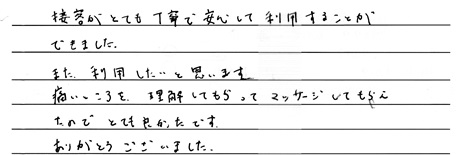 接客がとても丁寧で安心して利用することが
できました.
また.利用したいと思います
痛いところを.理解してもらって マッサージしてもらえ
たので とても良かったです.
ありがとうございました.